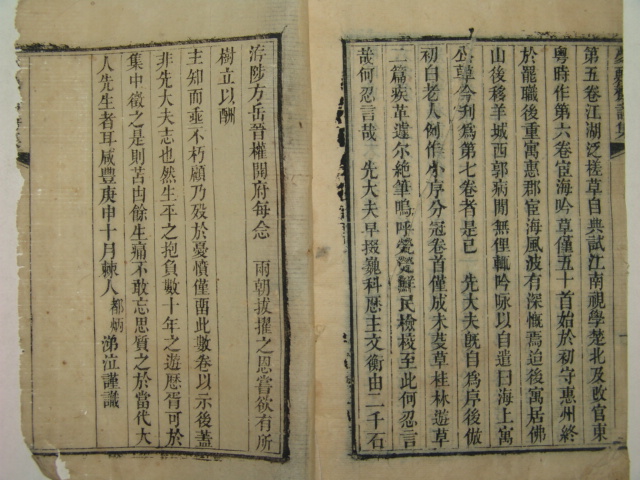 第五卷江湖泛槎草自典試江南視學楚北及改官東
粵時作第六卷宦海吟草僅五十首始於初守惠州終
於罷職後重寓惠郡宦海風波有深慨焉迨後寓居佛
山後移羊城西郭病閒無俚輒吟咏以自遣曰海上寓
公草今刋爲第七卷者是已　先大夫旣自爲序後倣
初白老人例作小序分冠卷首僅成未芟草桂林遊草
二篇疾革遺尔絶筆嗚呼煢煢鮮民檢校至此何忍言
哉何忍言哉　先大夫早掇巍科歴主文衡由二千石
洊陟方岳晉權開府每念　兩朝拔擢之恩嘗欲有所
樹立以酬
主知而垂不朽顧乃歿於憂憤僅畱此數卷以示後蓋
非先大夫志也然生平之抱負數十年之遊歴胥可於
集中徵之是則苫凷餘生痛不敢忘思質之於當代大
人先生者耳咸豐庚申十月棘人都炳涕泣謹識